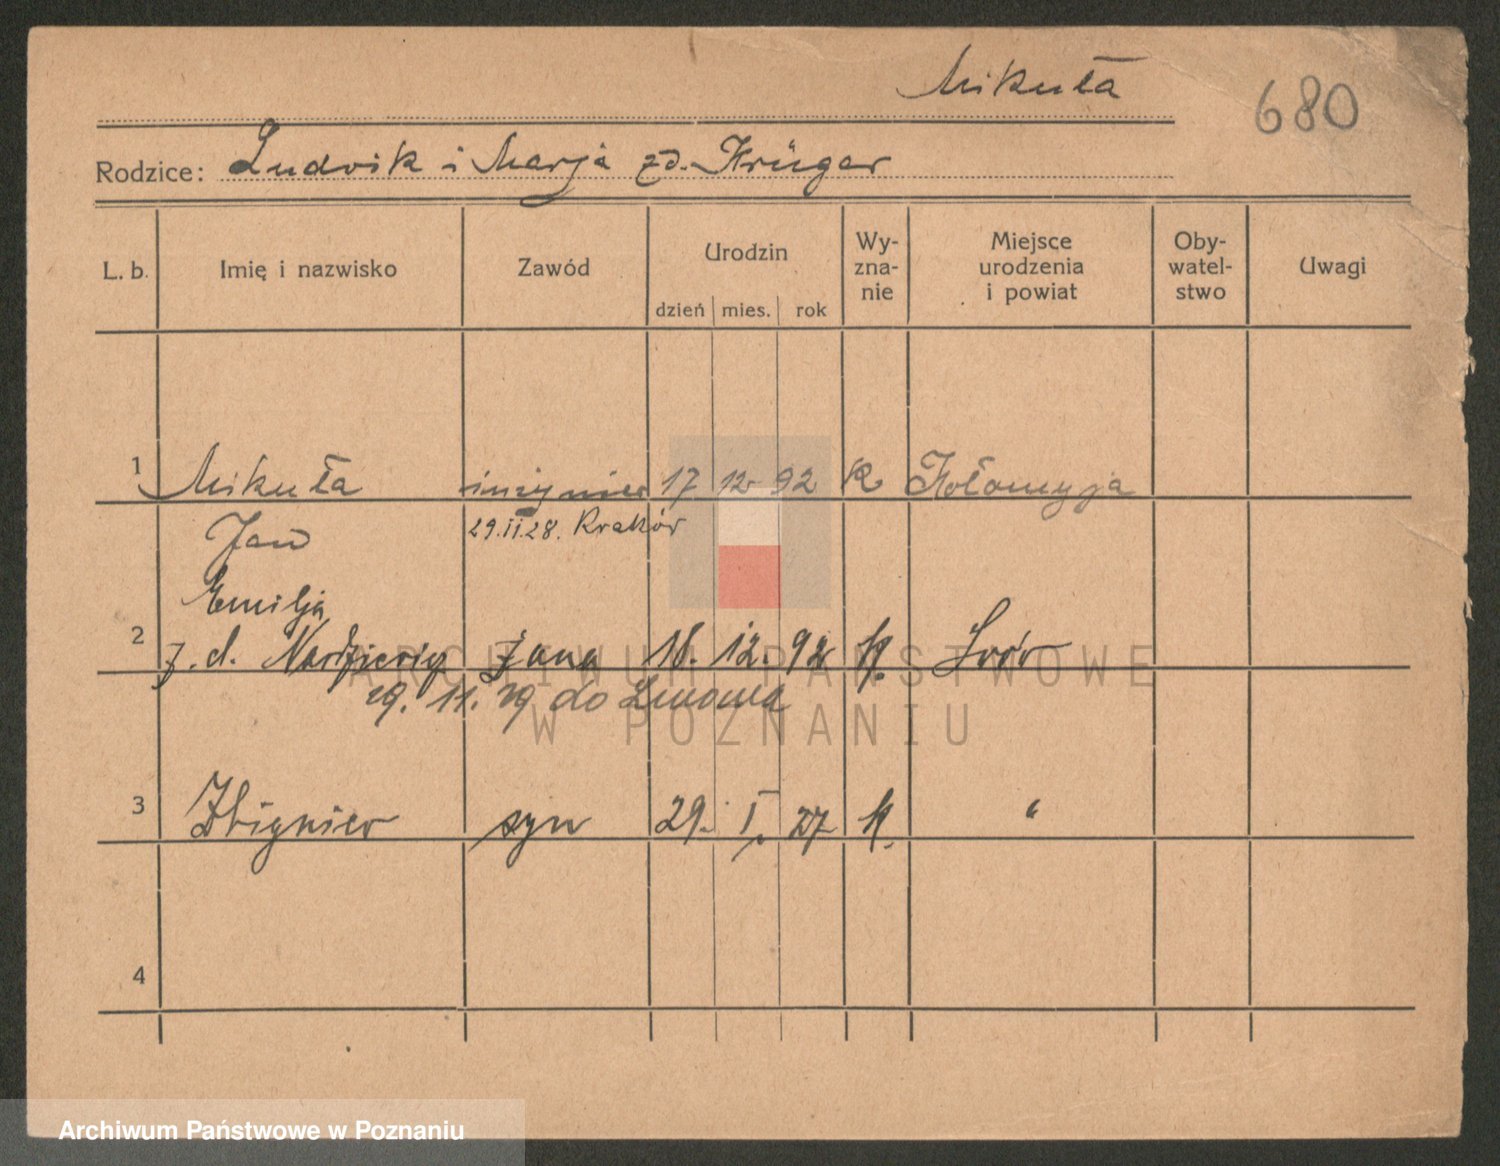 Mikuła
680
Rodzice: Ludwik i Marja zd. Krüger
L. b. Imię i nazwisko Zawód Urodzin dzień mies. rok Wy-zna-nie Miejsce urodzenia i powiat Oby-watel-stwo Uwagi
1 Mikuła inżynier 17 12 92 K Kołomyja
Jan 29.II.28. Kraków
Emilja
2 z. d. żona 18. 12. 92 K. Lwów
29. 11. 29 do Lwowa
3 Zbigniew syn 29. I. 27 K. "
4
ARCHIWUM PAŃSTWOWE
W POZNANIU
Archiwum Państwowe w Poznaniu